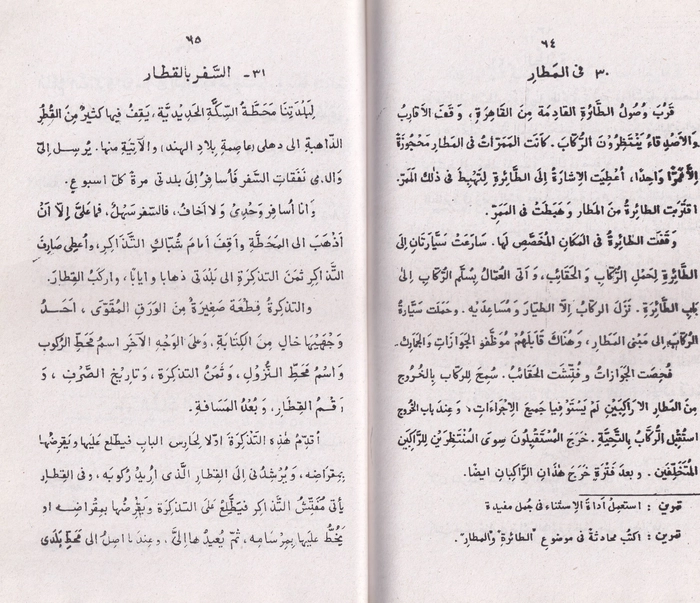 ٦٤
٣٠ فى المَطارِ
قَرُبَ وُصُولُ الطَّائِرَةِ القَادِمَةِ مِنَ القَاهِرَةِ، وَقَفَ الأَقَارِبُ
والأَصْدِقاءُ يَنْتَظِرُونَ الرُّكَّابَ. كَانَتِ المَمَرّاتُ فى المَطارِ مَحْجُوزَةً
إلاَّ مَمَرًّا وَاحِدًا، أُعْطِيَتِ الإِشارَةُ إلَى الطَّائِرَةِ لِتَهْبِطَ فى ذلكَ المَمَرِّ.
اقتَرَبَتِ الطَائِرةُ مِنَ المَطارِ وَهَبَطَتْ فى المَمَرِّ.
وَقَفَتِ الطَّائِرَةُ فى المَكانِ المُخَصَّصِ لَها. سَارَعَتْ سَيَّارَتَانِ إلَى
الطَّائِرَةِ لِحَمْلِ الرُّكَّابِ وَالحَقَائِبِ، وَأَتَى العُمَّالُ بِسُلَّمِ الرُّكَّابِ إلَى
بَابِ الطَّائِرَةِ. نَزَلَ الرُكَّابُ إلاَّ الطَيَّارَ وَمُسَاعِدَيْهِ. وَحَمَلَتْ سَيَّارَةُ
الرُّكّابِ إِلَى مَبْنَى المَطارِ، وَهُنَاكَ قَابَلَهُمْ مُوَظَّفُو الجَوَازاتِ وَالجَمَارِكِ.
فُحِصَتِ الجَوَازاتُ وَفُتِّشَتِ الحَقَائِبُ. سُمِحَ لِلرُكَّابِ بِالخُرُوجِ
مِنَ المَطارِ الاَّ رَاكِبَيْنِ لَمْ يَسْتَوْفِيا جَمِيعَ الاِجْرَاءاتِ، وَعِندَ بابِ الخُرُوجِ
استُقْبِلَ الرُكَّابُ بِالتَّحِيَّةِ. خَرَجَ المُسْتَقْبِلُونَ سِوَى المُنْتَظِرَيْنِ لِلرَّاكِبَيْنِ
المُتَخَلِّفَيْنِ. وبعدَ فَتْرَةٍ خَرَجَ هٰذَانِ الرَّاكِبانِ ايضًا.
تمرين : استعمِلْ أداةَ الاستثناءِ فى جُملٍ مفيدةٍ
تمرين : اكتُبْ محادثةً فى موضوعِ "الطائرة والمطار".
٦٥
٣١- السَّفر بالقطار
لِبَلْدَتِنَا مَحَطَّةُ السِّكَّةِ الحَدِيدِيَّةِ، يَقِفُ فيها كَثِيرٌ مِنَ القُطُرِ
الذَّاهِبَةِ إلَى دهلى (عاصمةِ بلادِ الهند) وَالآتِيَةِ منها. يُرسِلُ إلىَّ
وَالدِى نَفَقاتِ السَّفرِ فَأسافِرُ إلَى بلدتى مرةً كلَّ اسبوعٍ.
وَأنا أُسافِرُ وَحْدِىْ وَلا أخَافُ، فالسّفرُ سَهْلٌ، فَما عَلَىَّ إلاَّ أَنْ
أَذْهَبَ الى المَحَطَّةِ وَأقِفَ أمامَ شُبَّاكِ التَّذاكِرِ، وَأُعطِى صَارِفَ
التَّذاكِرِ ثَمَنَ التَذكِرَةِ الى بَلْدَتى ذهابا وايابًا، واركَبُ القِطارَ.
والتذكِرَةُ قِطعَة صَغِيرَةٌ مِنَ الوَرَقِ المُقَوَّى، أحَدُ
وَجْهَيْهَا خالٍ مِنَ الكِتابَةِ، وعلَى الوَجْهِ الآخَرِ اسمُ مَحَطِّ الرُكوبِ
وَاسْمُ مَحَطِّ النُّزُولِ، وَثَمَنُ التَّذكِرَةِ، وَتاريخُ الصَّرْفِ، وَ
رَقْمُ القِطارِ، وَبُعْدُ المَسَافَةِ.
أُقَدِّمُ هٰذِهِ التَّذْكِرَةَ اوّلاً لِحَارِسِ البابِ فيطّلِعُ عَلَيها وَيَقْرِضُها
بِمِقراضِهِ، وَيُرْشِدُنى إلَى القِطارِ الَّذى أُريدُ رُكوبَهُ، وفى القِطارِ
يأتى مُفَتِّشُ التَّذاكِرِ فَيَطَّلِعُ عَلَى التذكرَةِ وَيَقْرِضُها بِمِقراضِهِ او
يَخُطُّ عليها بِمِرْسَامِهِ، ثُمَّ يُعيدُها إلىَّ، وعندما اصِلُ الى مَحَطِّ بلدى